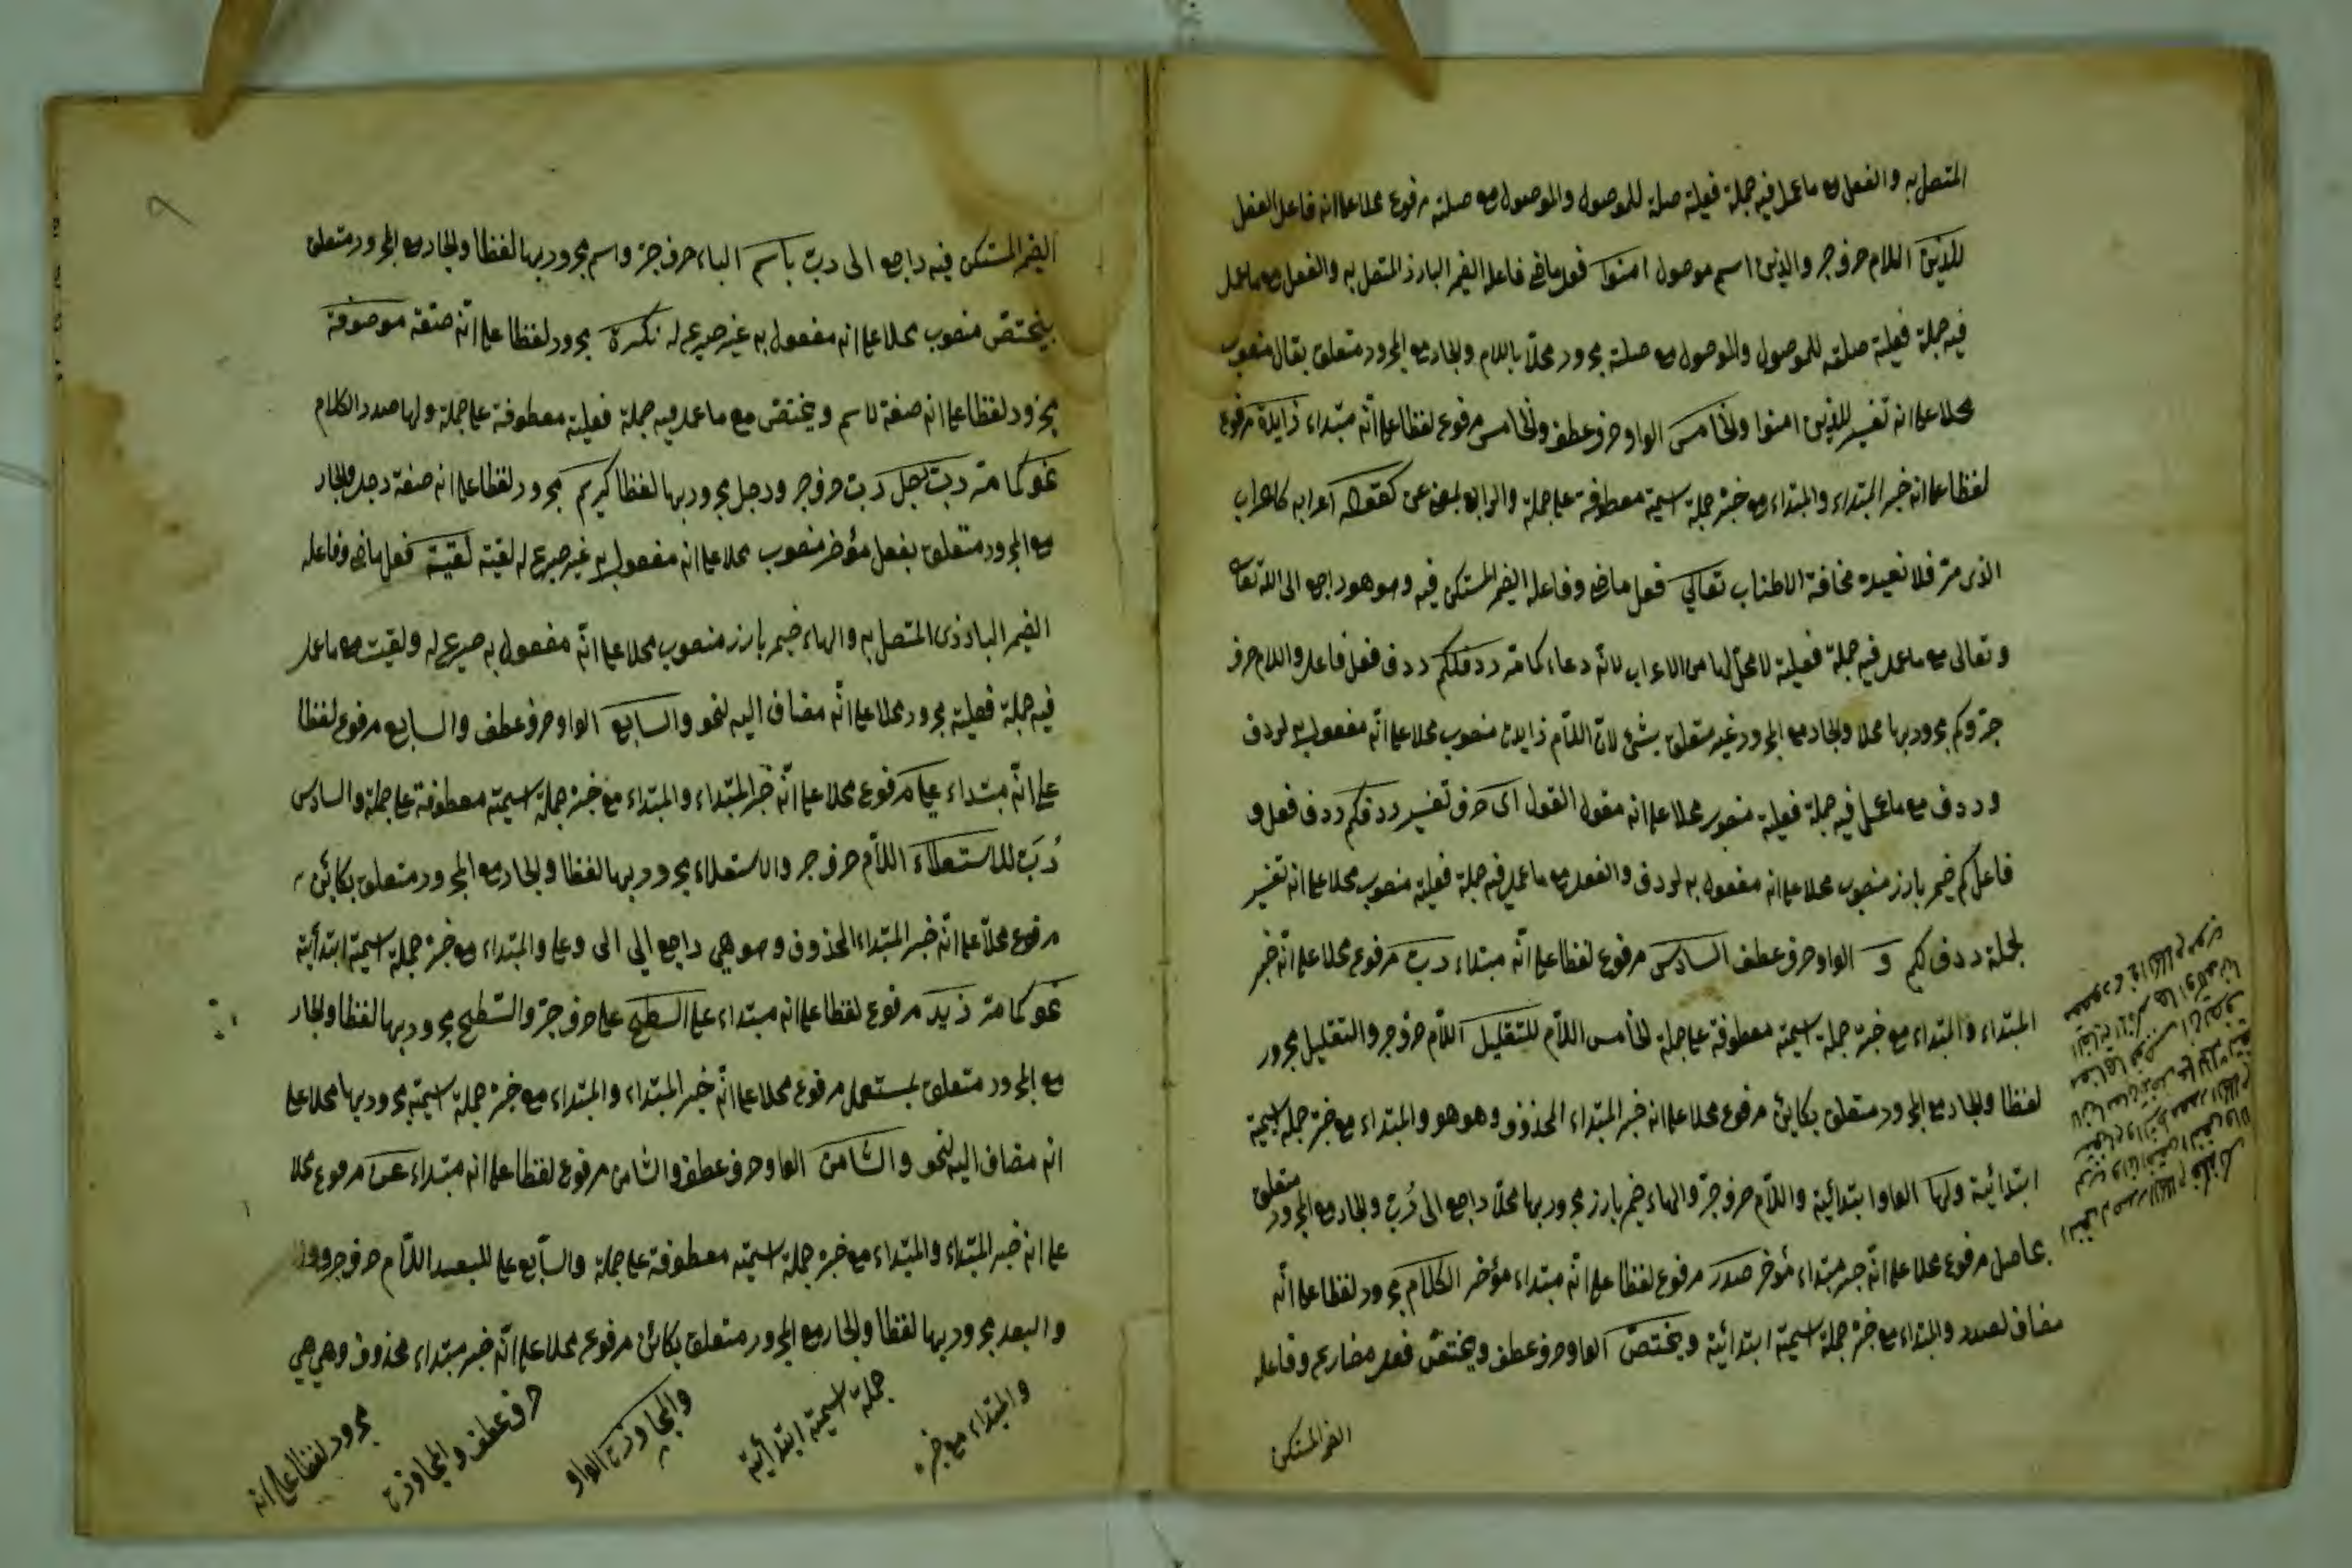 المتصل به والفعل مع ما عمل فيه جملة فعلية صلة للموصول والموصول مع صلته مرفوع محلا على انه فاعل الفعل
للذين اللام حرف جر والذين اسم موصول امنوا فعل ماض فاعله الضمير البارز المتصل به والفعل مع ما عمل
فيه جملة فعلية صلة للموصول والموصول مع صلته مجرور محلا باللام والجار مع المجرور متعلق بقال منصوب
محلا على انه تفسير للذين امنوا والخامس الواو حرف عطف والخامس مرفوع لفظا على انه مبتداء زايدة مرفوع
لفظا على انه خبر المبتداء والمبتداء مع خبره جملة اسمية معطوفة على جملة والرابع بمعنى عن كقوله اعرابه كاعراب
الذى مر فلا نعيده مخافة الاطناب تعالى فعل ماض وفاعله الضمير المستكن فيه وهو هو راجع الى الله تعا
وتعالى مع ما عمل فيه جملة فعلية لا محل لها من الاعراب لانه دعاء كما مر ردف لكم ردف فعل فاعل واللام حرف
جر وكم مجرور بها محلا والجار مع المجرور غير متعلق بشئ لان اللام زايدة منصوب محلا على انه مفعول به لردف
وردف مع ما عمل فيه جملة فعلية منصوب محلا على انه مقول القول اى حرف تفسير ردفكم ردف فعل و
فاعل كم ضمير بارز منصوب محلا على انه مفعول به لردف والفعل مع ما عمل فيه جملة فعلية منصوب محلا على انه تفسير
لجملة ردف لكم و الواو حرف عطف السادس مرفوع لفظا على انه مبتداء رب مرفوع محلا على انه خبر
المبتداء والمبتداء مع خبره جملة اسمية معطوفة على جملة الخامس اللام للتقليل اللام حرف جر والتقليل مجرور
لفظا والجار مع المجرور متعلق بكائن مرفوع محلا على انه خبر المبتداء المحذوف وهو هو والمبتداء مع خبره جملة اسمية
ابتدائية ولها الواو ابتدائية واللام حرف جر والهاء ضمير بارز مجرور بها محلا راجع الى رب والجار مع المجرور متعلق
بحاصل مرفوع محلا على انه خبر مبتداء مؤخر صدر مرفوع لفظا على انه مبتداء مؤخر الكلام مجرور لفظا على انه
مضاف لصدر والمبتداء مع خبره جملة اسمية ابتدائية ويختص الواو حرف عطف ويختص فعل مضارع وفاعله
الضمير المستكن
٩
الضمير المستكن فيه راجع الى رب باسم الباء حرف جر واسم مجرور بها لفظا والجار مع المجرور متعلق
بيختص منصوب محلا على انه مفعول به غير صريح له نكرة مجرور لفظا على انه صفة موصوفة
مجرور لفظا على انه صفة لاسم ويختص مع ما عمل فيه جملة فعلية معطوفة على جملة ولها صدر الكلام
نحو كما مر رب رجل رب حرف جر ورجل مجرور بها لفظا كريم مجرور لفظا على انه صفة رجل والجار
مع المجرور متعلق بفعل مؤخر منصوب محلا على انه مفعول به غير صريح له لقيته لقيته فعل ماض وفاعله
الضمير البارز المتصل به والهاء ضمير بارز منصوب محلا على انه مفعول به صريح له ولقيت مع ما عمل
فيه جملة فعلية مجرور محلا على انه مضاف اليه لنحو والسابع الواو حرف عطف والسابع مرفوع لفظا
على انه مبتداء على مرفوع محلا على انه خبر المبتداء والمبتداء مع خبره جملة اسمية معطوفة على جملة والسادس
رب للاستعلاء اللام حرف جر والاستعلاء مجرور بها لفظا والجار مع المجرور متعلق بكائن
مرفوع محلا على انه خبر المبتداء المحذوف وهو هى راجع الى على والمبتداء مع خبره جملة اسمية ابتدأئية
نحو كما مر زيد مرفوع لفظا على انه مبتداء على السطح على حرف جر والسطح مجرور بها لفظا والجار
مع المجرور متعلق بمستعمل مرفوع محلا على انه خبر المبتداء والمبتداء مع خبره جملة اسمية مجرور بها محلا على
انه مضاف اليه لنحو والثامن الواو حرف عطف والثامن مرفوع لفظا على انه مبتداء عن مرفوع محلا
على انه خبر المبتداء والمبتداء مع خبره جملة اسمية معطوفة على جملة والسابع على للبعد اللام حرف جر
والبعد مجرور بها لفظا والجار مع المجرور متعلق بكائن مرفوع محلا على انه خبر مبتداء محذوف وهى هى
والمبتداء مع خبره
جملة اسمية ابتدأئية
والمجاوزة الواو
حرف عطف والمجاوزة
مجرور لفظا على انه